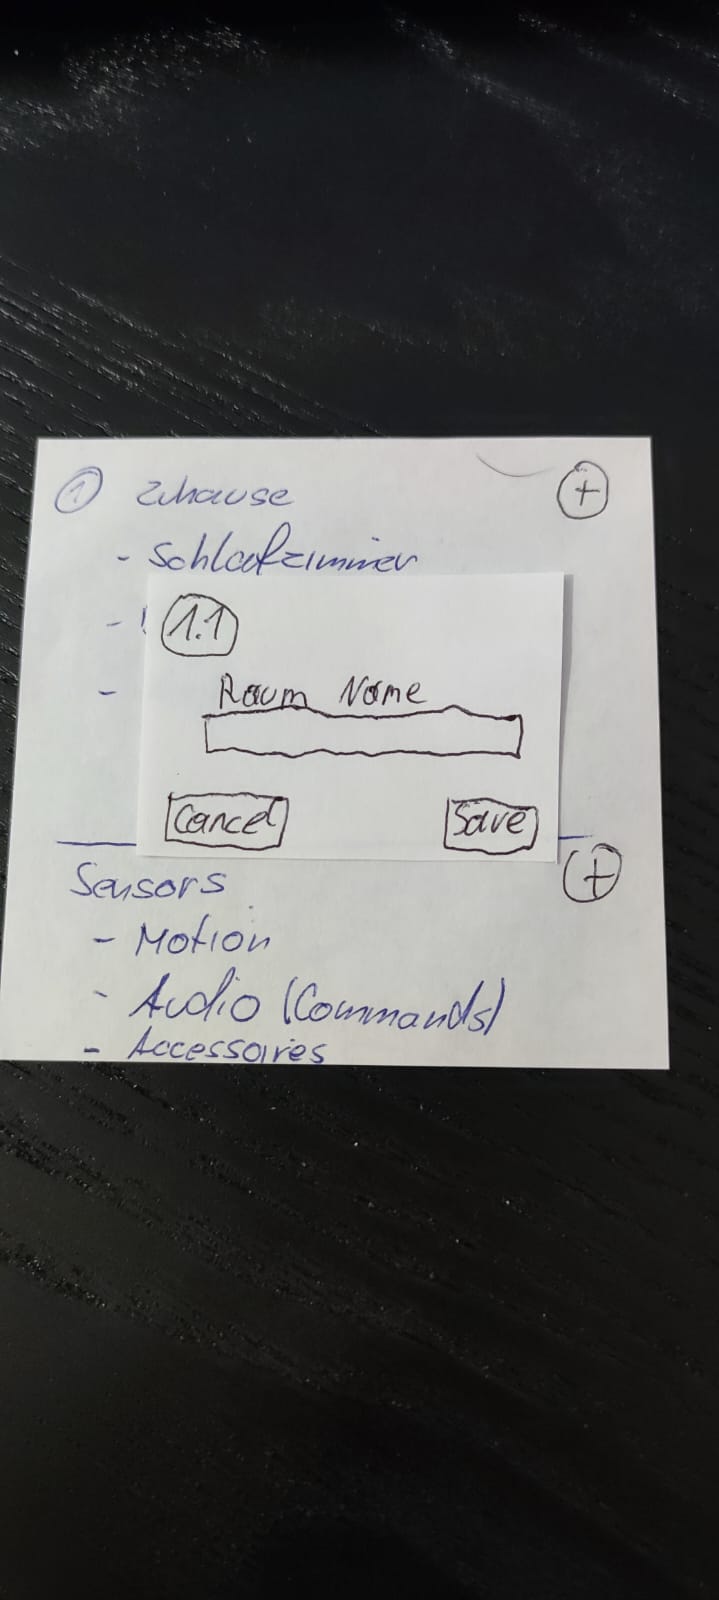 1 Zuhause +
- Schlafzimmer
-
-
1.1
Raum Name
Cancel Save
Sensors +
- Motion
- Audio (Commands)
- Accessoires